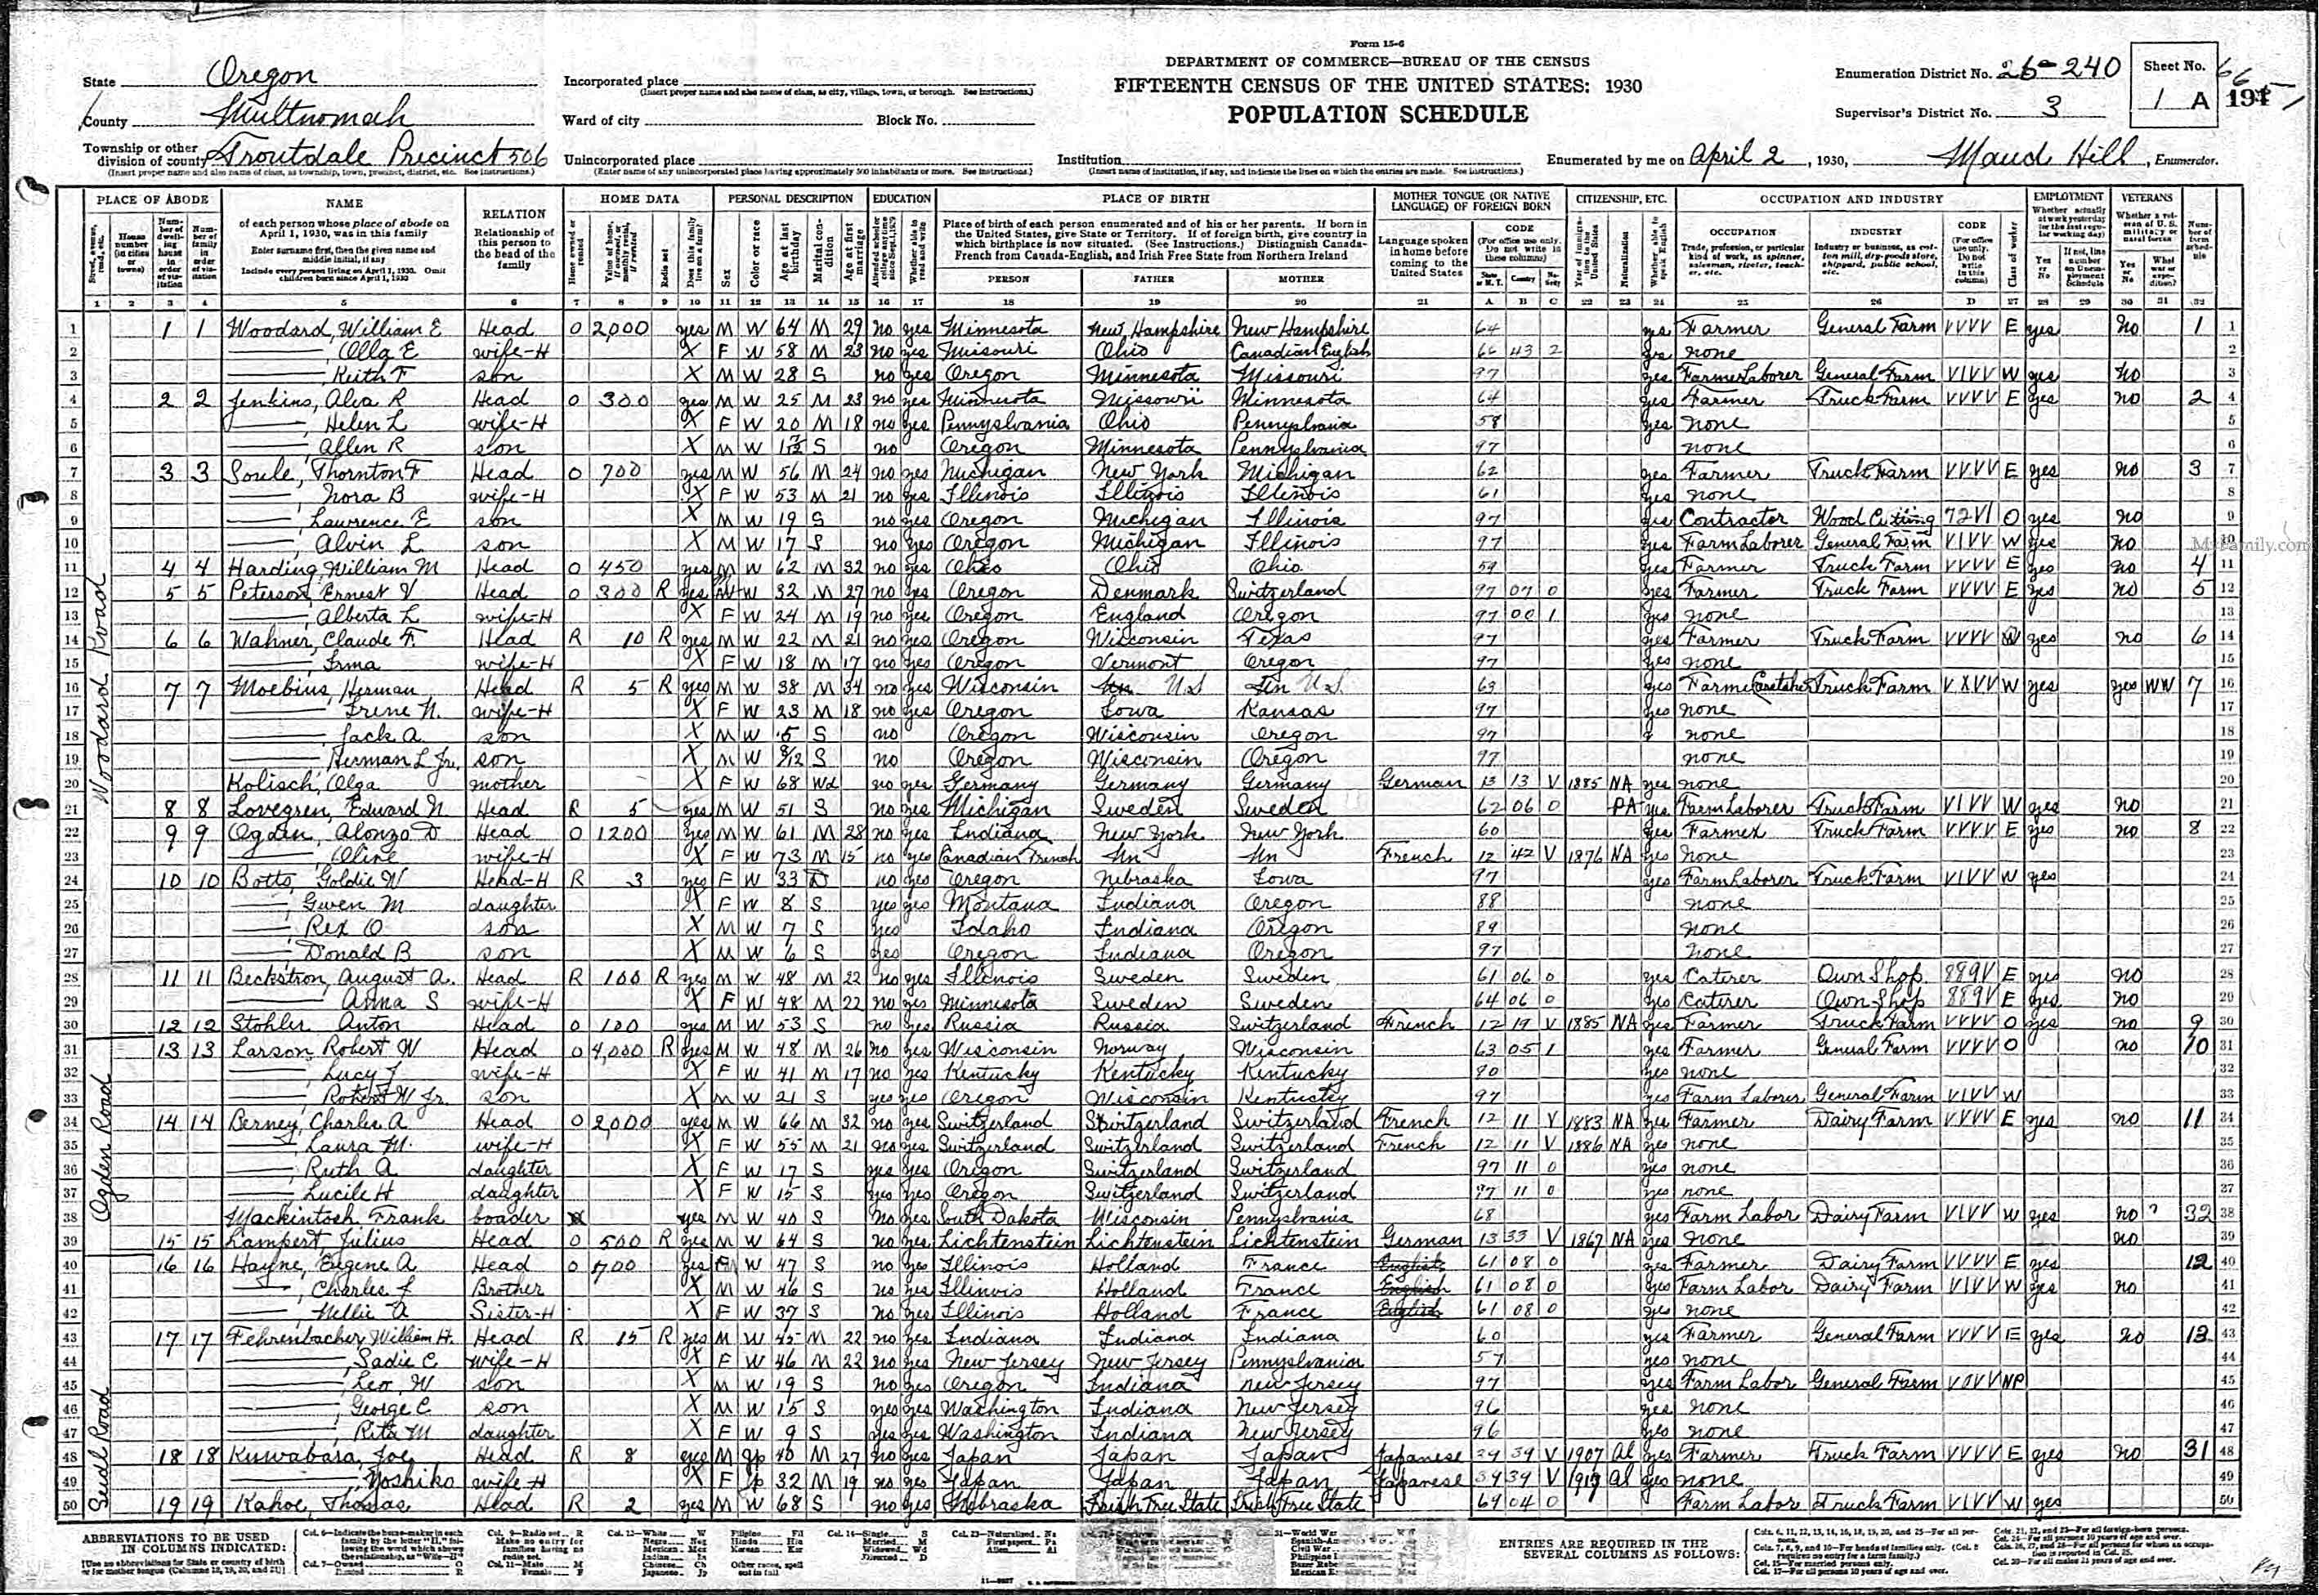 Form 15-6
DEPARTMENT OF COMMERCE—BUREAU OF THE CENSUS
FIFTEENTH CENSUS OF THE UNITED STATES: 1930
POPULATION SCHEDULE
State Oregon
County Multnomah
Township or other division of county Troutdale Precinct 506
(Insert proper name and also name of class, as township, town, precinct, district, etc. See instructions.)
Incorporated place
(Insert proper name and also name of class, as city, village, town, or borough. See instructions.)
Ward of city Block No.
Unincorporated place
(Enter name of any unincorporated place having approximately 500 inhabitants or more. See instructions.)
Institution
(Insert name of institution, if any, and indicate the lines on which the entries are made. See instructions.)
Enumeration District No. 26-240
Supervisor's District No. 3
Sheet No. 1 A
Enumerated by me on April 2, 1930, Maud Hill, Enumerator.
PLACE OF ABODE NAME RELATION HOME DATA PERSONAL DESCRIPTION EDUCATION PLACE OF BIRTH MOTHER TONGUE (OR NATIVE LANGUAGE) OF FOREIGN BORN CITIZENSHIP, ETC. OCCUPATION AND INDUSTRY EMPLOYMENT VETERANS
of each person whose place of abode on April 1, 1930, was in this family
Enter surname first, then the given name and middle initial, if any
Include every person living on April 1, 1930. Omit children born since April 1, 1930
Relationship of this person to the head of the family
Place of birth of each person enumerated and of his or her parents. If born in the United States, give State or Territory. If of foreign birth, give country in which birthplace is now situated. (See Instructions.) Distinguish Canada-French from Canada-English, and Irish Free State from Northern Ireland
PERSON FATHER MOTHER
Language spoken in home before coming to the United States
CODE
OCCUPATION INDUSTRY CODE
Woodard Road
1 1 1 Woodard, William E Head O 2,000 yes M W 64 M 29 no yes Minnesota New Hampshire New Hampshire 64 yes Farmer General Farm VVVV E yes no 1
2 Olla E wife-H X F W 58 M 23 no yes Missouri Ohio Canadian English 66 43 2 yes none
3 Keith F son X M W 28 S no yes Oregon Minnesota Missouri 97 yes Farmer Laborer General Farm VIVV W yes no
4 2 2 Jenkins, Alva R Head O 300 yes M W 25 M 23 no yes Minnesota Missouri Minnesota 64 yes Farmer Truck Farm VVVV E yes no 2
5 Helen L wife-H X F W 20 M 18 no yes Pennsylvania Ohio Pennsylvania 58 yes none
6 Allen R son X M W S no Oregon Minnesota Pennsylvania 97 none
7 3 3 Soule, Thornton F Head O 700 yes M W 56 M 24 no yes Michigan New York Michigan 62 yes Farmer Truck Farm VVVV E yes no 3
8 Nora B wife-H X F W 53 M 21 no yes Illinois Illinois Illinois 61 yes none
9 Lawrence E son X M W 19 S no yes Oregon Michigan Illinois 97 yes Contractor Wood Cutting 72VI O yes no
10 Alvin L son X M W 17 S no yes Oregon Michigan Illinois 97 yes Farm Laborer General Farm VIVV W yes no
11 4 4 Harding, William M Head O 450 yes M W 62 M 32 no yes Ohio Ohio Ohio 59 yes Farmer Truck Farm VVVV E yes no 4
12 5 5 Peterson, Ernest V Head O 300 R yes M W 32 M 27 no yes Oregon Denmark Switzerland 97 07 0 yes Farmer Truck Farm VVVV E yes no 5
13 Alberta L wife-H X F W 24 M 19 no yes Oregon England Oregon 97 00 1 yes none
14 6 6 Wahner, Claude F. Head R 10 R yes M W 22 M 21 no yes Oregon Wisconsin Texas 97 yes Farmer Truck Farm VVVV W yes no 6
15 Irma wife-H X F W 18 M 17 no yes Oregon Vermont Oregon 97 yes none
16 7 7 Moebius, Herman Head R 5 R yes M W 38 M 34 no yes Wisconsin Un U.S Un U.S. 63 yes Farm Caretaker Truck Farm VXVV W yes yes WW 7
17 Irene N. wife-H X F W 23 M 18 no yes Oregon Iowa Kansas 97 yes none
18 Jack A son X M W 5 S no Oregon Wisconsin Oregon 97 none
19 Herman L Jr. son X M W 8/12 S no Oregon Wisconsin Oregon 97 none
20 Kolisch, Olga mother X F W 68 Wd no yes Germany Germany Germany German 13 13 V 1885 NA yes none
21 8 8 Lovegren, Edward N. Head R 5 yes M W 51 S no yes Michigan Sweden Sweden 62 06 0 PA yes Farm Laborer Truck Farm VIVV W yes no
22 9 9 Ogden, Alonzo D Head O 1200 yes M W 61 M 28 no yes Indiana New York New York 60 yes Farmer Truck Farm VVVV E yes no 8
23 Oline wife-H X F W 73 M 15 no yes Canadian French Un Un French 12 42 V 1876 NA yes none
24 10 10 Botts, Goldie W Head-H R 3 yes F W 33 D no yes Oregon Nebraska Iowa 97 yes Farm Laborer Truck Farm VIVV W yes
25 Gwen M daughter X F W 8 S yes yes Montana Indiana Oregon 88 none
26 Rex O son X M W 7 S yes Idaho Indiana Oregon 89 none
27 Donald B son X M W 6 S yes Oregon Indiana Oregon 97 none
28 11 11 Beckstron, August A. Head R 100 R yes M W 48 M 22 no yes Illinois Sweden Sweden 61 06 0 yes Caterer Own Shop 889V E yes no
29 Anna S wife-H X F W 48 M 22 no yes Minnesota Sweden Sweden 64 06 0 yes Caterer Own Shop 889V E yes no
30 12 12 Stohler Anton Head O 100 yes M W 53 S no yes Russia Russia Switzerland French 12 19 V 1885 NA yes Farmer Truck Farm VVVV O yes no 9
Ogden Road
31 13 13 Larson, Robert W Head O 4,000 R yes M W 48 M 26 no yes Wisconsin Norway Wisconsin 63 05 1 yes Farmer General Farm VVVV O no 10
32 Lucy J wife-H X F W 41 M 17 no yes Kentucky Kentucky Kentucky 80 yes none
33 Robert W Jr. son X M W 21 S yes yes Oregon Wisconsin Kentucky 97 yes Farm Laborer General Farm VIVV W
34 14 14 Berney, Charles A Head O 2,000 yes M W 66 M 32 no yes Switzerland Switzerland Switzerland French 12 11 V 1883 NA yes Farmer Dairy Farm VVVV E yes no 11
35 Laura M. wife-H X F W 55 M 21 no yes Switzerland Switzerland Switzerland French 12 11 V 1886 NA yes none
36 Ruth A daughter X F W 17 S yes yes Oregon Switzerland Switzerland 97 11 0 yes none
37 Lucile H daughter X F W 15 S yes yes Oregon Switzerland Switzerland 97 11 0 yes none
38 Mackintosh Frank boader yes M W 40 S no yes South Dakota Wisconsin Pennsylvania 68 yes Farm Labor Dairy Farm VIVV W yes no ? 32
39 15 15 Lampert, Julius Head O 500 R yes M W 64 S no yes Lichtenstein Lichtenstein Lichtenstein German 13 33 V 1867 NA yes none no
Seidl Road
40 16 16 Hayne, Eugene A Head O 700 yes M W 47 S no yes Illinois Holland France English 61 08 0 yes Farmer Dairy Farm VVVV E yes 12
41 Charles J Brother X M W 46 S no yes Illinois Holland France English 61 08 0 yes Farm Labor Dairy Farm VIVV W yes no
42 Nellie A Sister-H X F W 37 S no yes Illinois Holland France English 61 08 0 yes none
43 17 17 Fehrenbacher, William H. Head R 15 R yes M W 45 M 22 no yes Indiana Indiana Indiana 60 yes Farmer General Farm VVVV E yes no 13
44 Sadie C wife-H X F W 46 M 22 no yes New Jersey New Jersey Pennsylvania 57 yes none
45 Leo W son X M W 19 S no yes Oregon Indiana New Jersey 97 yes Farm Labor General Farm VOVV NP
46 George C son X M W 15 S yes yes Washington Indiana New Jersey 96 yes none
47 Rita M daughter X F W 9 S yes yes Washington Indiana New Jersey 96 yes none
48 18 18 Kuwabara, Joe Head R 8 yes M Jp 40 M 27 no yes Japan Japan Japan Japanese 39 V 1907 Al yes Farmer Truck Farm VVVV E yes no 31
49 Yoshiko wife H X F Jp 32 M 19 no yes Japan Japan Japan Japanese 39 39 V Al yes none
50 19 19 Kahoe, Thomas Head R 2 yes M W 68 S no yes Nebraska Irish Free State Irish Free State 69 04 0 Farm Labor Truck Farm VIVV W yes
ABBREVIATIONS TO BE USED IN COLUMNS INDICATED:
ENTRIES ARE REQUIRED IN THE SEVERAL COLUMNS AS FOLLOWS:
MyFamily.com